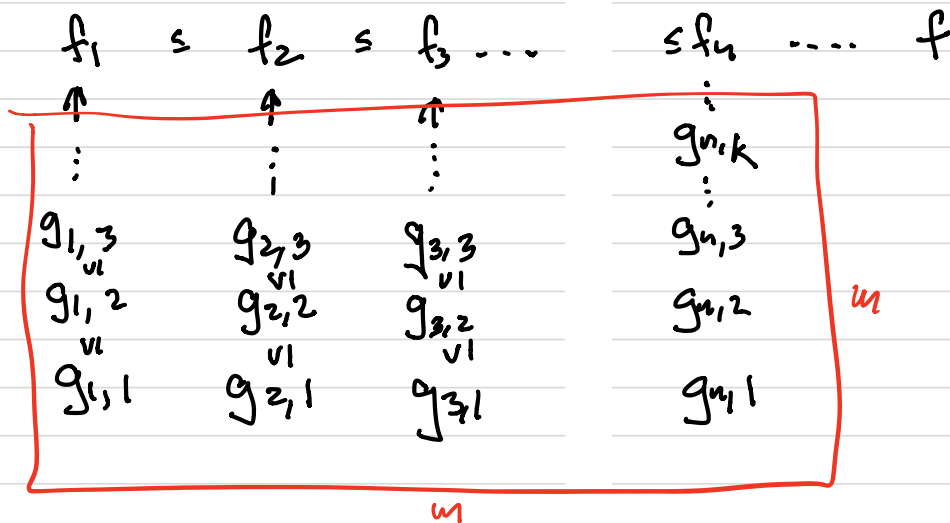 f₁ ≤ f₂ ≤ f₃ .... ≤ fₙ .... f
↑ ↑ ↑ ⋮
⋮ ⋮ ⋮ gₙ,ₖ
⋮
g₁,₃ g₂,₃ g₃,₃ gₙ,₃
v| v| v|
g₁,₂ g₂,₂ g₃,₂ gₙ,₂ m
v| v| v|
g₁,₁ g₂,₁ g₃,₁ gₙ,₁
m